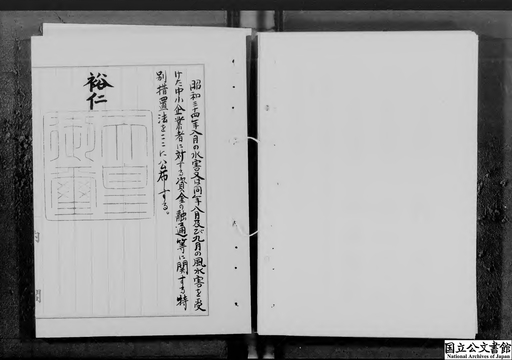 昭和三十四年八月の水害又は同年八月及び九月の風水害を受
けた中小企業者に対する資金の融通等に関する特
別措置法をここに公布する。
裕仁
天皇
御璽
国立公文書館
National Archives of Japan